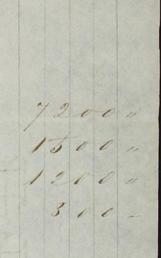 7200 "
1500 "
1200 "
300 –